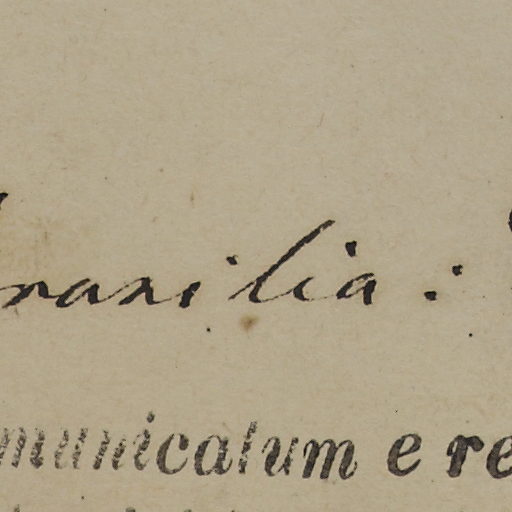 raxilia:
municatum e re